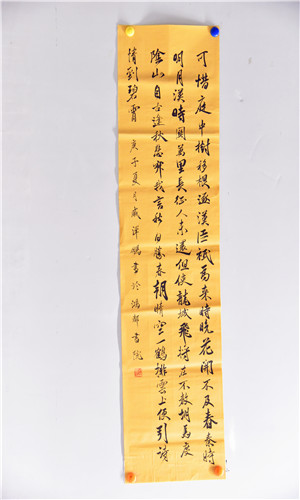 可惜庭中樹移根逐漢臣祇為來時晚花開不及春秦時
明月漢時關萬里長征人未還但使龍城飛將在不教胡馬度
陰山自古逢秋悲寂我言秋日勝春朝晴空一鶴排雲上便引詩
情到碧霄 庚子夏月 書於 書院